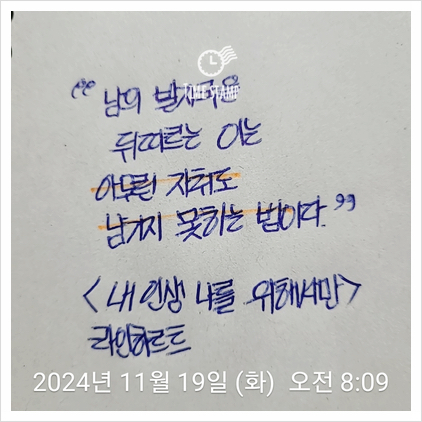 TIME STAMP
“남의 발자국은
뒤따르는 이는
아무런 자취도
남기지 못하는 법이다.”
<내 인생 나를 위해서만>
라인하르트
2024년 11월 19일 (화) 오전 8:09